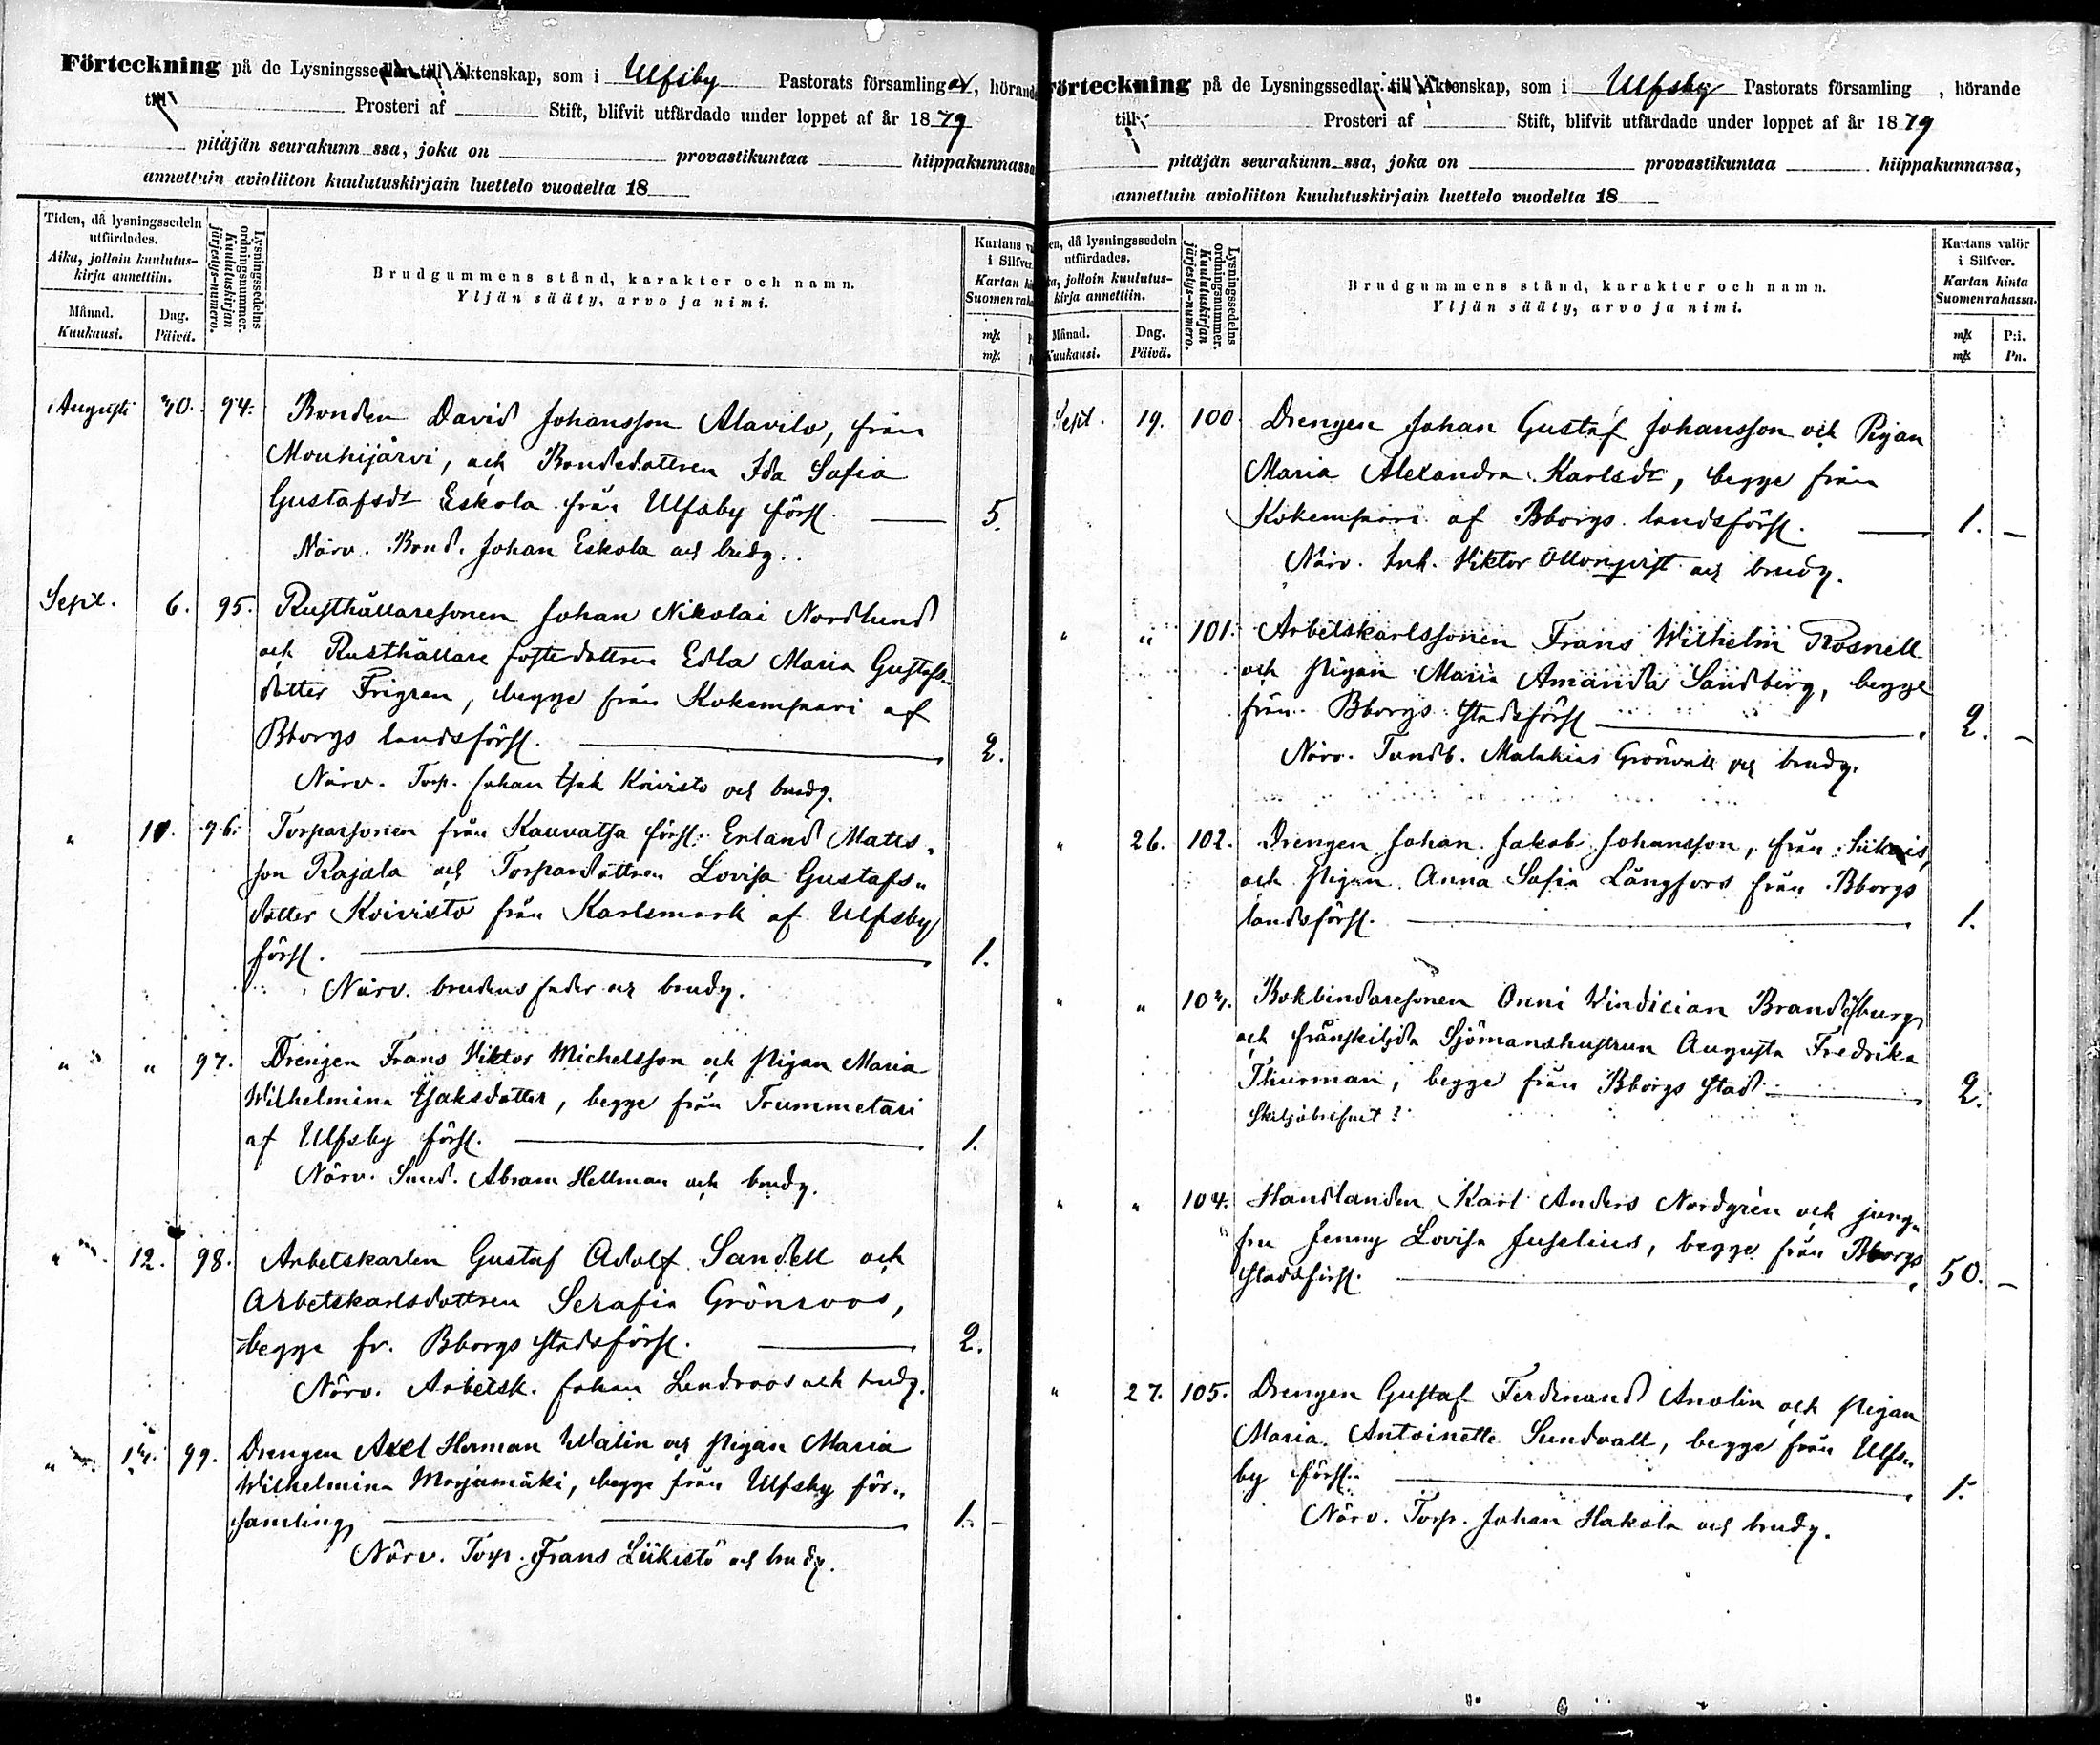 Förteckning på de Lysningssedlar till Äktenskap, som i Ulfsby Pastorats församlingar, hörande
till Prosteri af Stift, blifvit utfärdade under loppet af år 1879
pitäjän seurakunn ssa, joka on provastikuntaa hiippakunnassa
annettuin avioliiton kuulutuskirjain luettelo vuodelta 18
Tiden, då lysningssedeln utfärdades.
Aika, jolloin kuulutus-kirja annettiin.
Månad. Kuukausi.
Dag. Päivä.
Lysningssedelns ordningsnummer.
Kuulutuskirjan järjestys-numero.
Brudgummens stånd, karakter och namn.
Yljän sääty, arvo ja nimi.
Kartans
i Silfver.
Kartan
Suomen
mk
mk
Augusti 30. 94. Bonden David Johansson Alavilo, från
Mouhijärvi, och Bondedottren Ida Sofia
Gustafsdr Eskola från Ulfsby förs. 5.
Närv. Bond. Johan Eskola och brudg.
Sept. 6. 95. Rusthållaresonen Johan Nikolai Nordlund
och Rusthållare fosterdottren Edla Maria Gustafs-
dotter Frigren, begge från Kokemperi af
Bborgs landsförs. 2.
Närv. Torp. Johan Isak Koivisto och brudg.
" 10. 96. Torparsonen från Kauvatsa förs. Erland Matts-
son Rajala och Torparedottren Lovisa Gustafs-
dotter Koivisto från Karlsmark af Ulfsby
förs. 1.
Närv. brudens fader och brudg.
" " 97. Drengen Frans Viktor Michelsson och pigan Maria
Wilhelmina Isaksdotter, begge från Trummetari
af Ulfsby förs. 1.
Närv. Smed. Abram Hellman och brudg.
" 12. 98. Arbetskarlen Gustaf Adolf Sandell och
Arbetskarlsdottren Serafia Grönroos,
begge fr. Bborgs stadsförs. 2.
Närv. Arbetsk. Johan Lindroos och brudg.
" 13. 99. Drengen Axel Herman Walin och pigan Maria
Wilhelmina Marjamäki, begge från Ulfsby för-
samling 1. -
Närv. Torp. Frans Liikistö och brudg.
Förteckning på de Lysningssedlar till Äktenskap, som i Ulfsby Pastorats församling , hörande
till Prosteri af Stift, blifvit utfärdade under loppet af år 1879
pitäjän seurakunn ssa, joka on provastikuntaa hiippakunnassa,
annettuin avioliiton kuulutuskirjain luettelo vuodelta 18
en, då lysningssedeln utfärdades.
ka, jolloin kuulutus-kirja annettiin.
Månad. Kuukausi.
Dag. Päivä.
Lysningssedelns ordningsnummer.
Kuulutuskirjan järjestys-numero.
Brudgummens stånd, karakter och namn.
Yljän sääty, arvo ja nimi.
Kartans valör
i Silfver.
Kartan hinta
Suomen rahassa.
mk P:i.
mk Pn.
Sept. 19. 100. Drengen Johan Gustaf Johansson och Pigan
Maria Alexandra Karlsdr, begge från
Kokemperi af Bborgs landsförs. 1. -
Närv. Inh. Viktor Ollonqvist och brudg.
" " 101. Arbetskarlssonen Frans Wilhelm Rosnell
och pigan Maria Amanda Sandberg, begge
från Bborgs stadsförs 2. -
Närv. Malakias Grönvall och brudg.
" 26. 102. Drengen Johan Jakob Johansson, från Siikais,
och pigan Anna Sofia Långfors från Bborgs
landsförs. 1.
" " 103. Bokbindaresonen Onni Vindician Brandesburg
och frånskiljda Sjömanshustrun Augusta Fredrika
Thurman, begge från Bborgs stad 2.
Skiljobrefvet?
" " 104. Handlanden Karl Anders Nordgrén och jung-
fru Jenny Lovisa Juselius, begge från Bborgs
stadsförs. 50. -
" 27. 105. Drengen Gustaf Ferdinand Anolin och pigan
Maria Antoinette Sundvall, begge från Ulfs-
by förs. 1.
Närv. Torp. Johan Hakola och brudg.